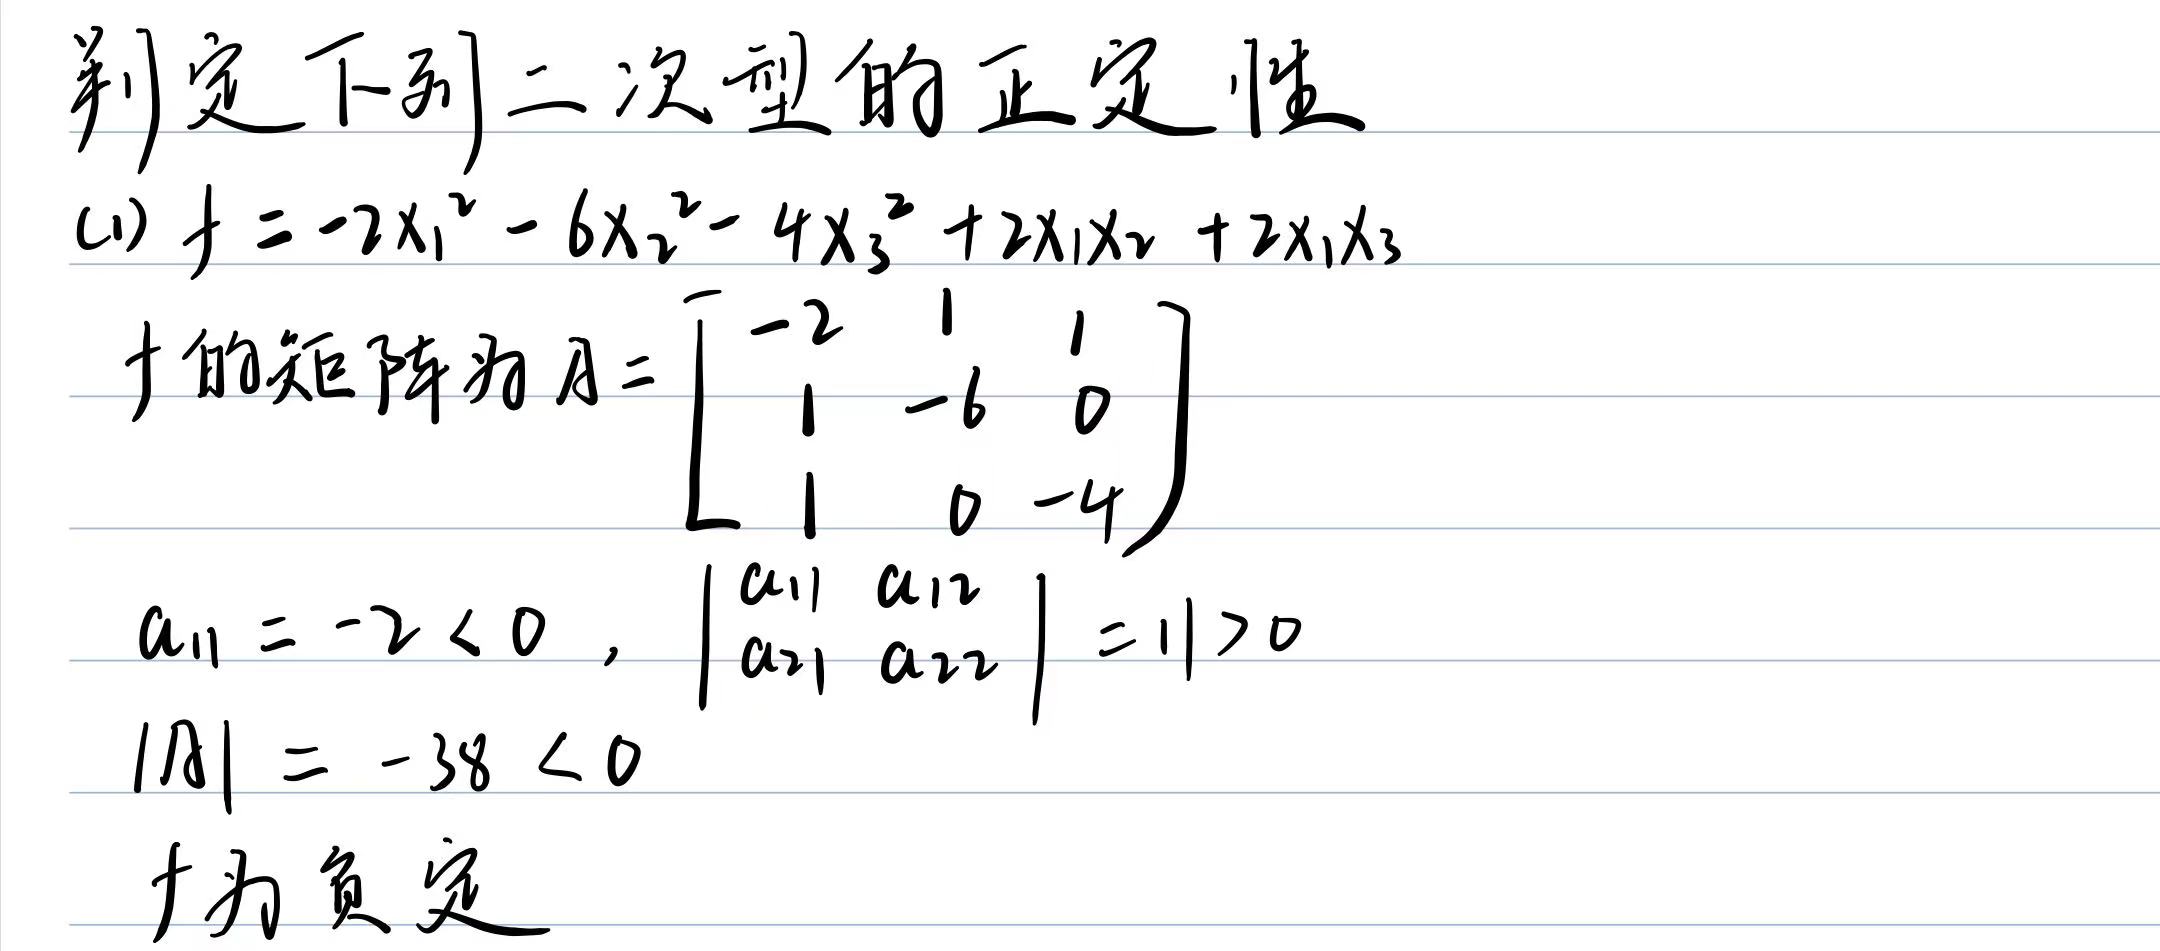 判定下列二次型的正定性
(1) f = -2x₁² - 6x₂² - 4x₃² + 2x₁x₂ + 2x₁x₃
f的矩阵为 A = [ -2 1 1
1 -6 0
1 0 -4 ]
a₁₁ = -2 < 0 , | a₁₁ a₁₂
a₂₁ a₂₂ | = 11 > 0
|A| = -38 < 0
f为负定